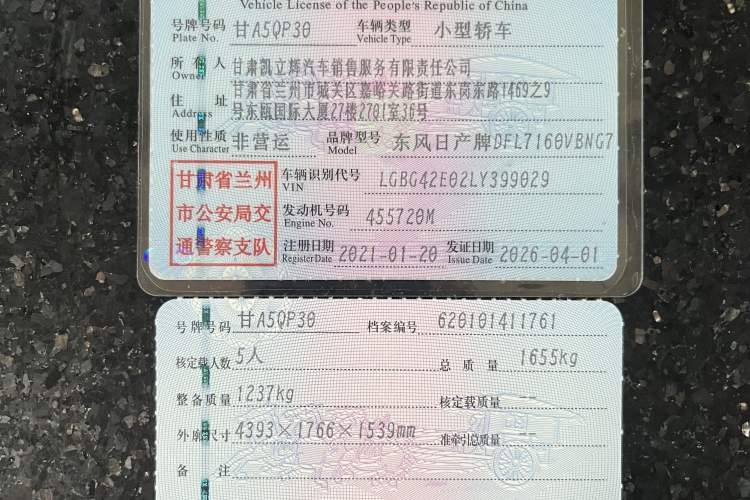 Vehicle License of the People's Republic of China
号牌号码 甘A5QP30 车辆类型 小型轿车
Plate No. Vehicle Type
所有人 甘肃凯立辉汽车销售服务有限责任公司
Owner
住址 甘肃省兰州市城关区嘉峪关路街道东岗东路1469之9
Address 号东瓯国际大厦27楼2701室36号
使用性质 非营运 品牌型号 东风日产牌DFL7160VBNG7
Use Character Model
甘肃省兰州
市公安局交
通警察支队
车辆识别代号 LGBG42E02LY399029
VIN
发动机号码 455720M
Engine No.
注册日期 2021-01-20 发证日期 2026-04-01
Register Date Issue Date
号牌号码 甘A5QP30 档案编号 620101411761
核定载人数 5人 总质量 1655kg
整备质量 1237kg 核定载质量 --
外廓尺寸 4393×1766×1539mm 准牵引总质量 --
备注